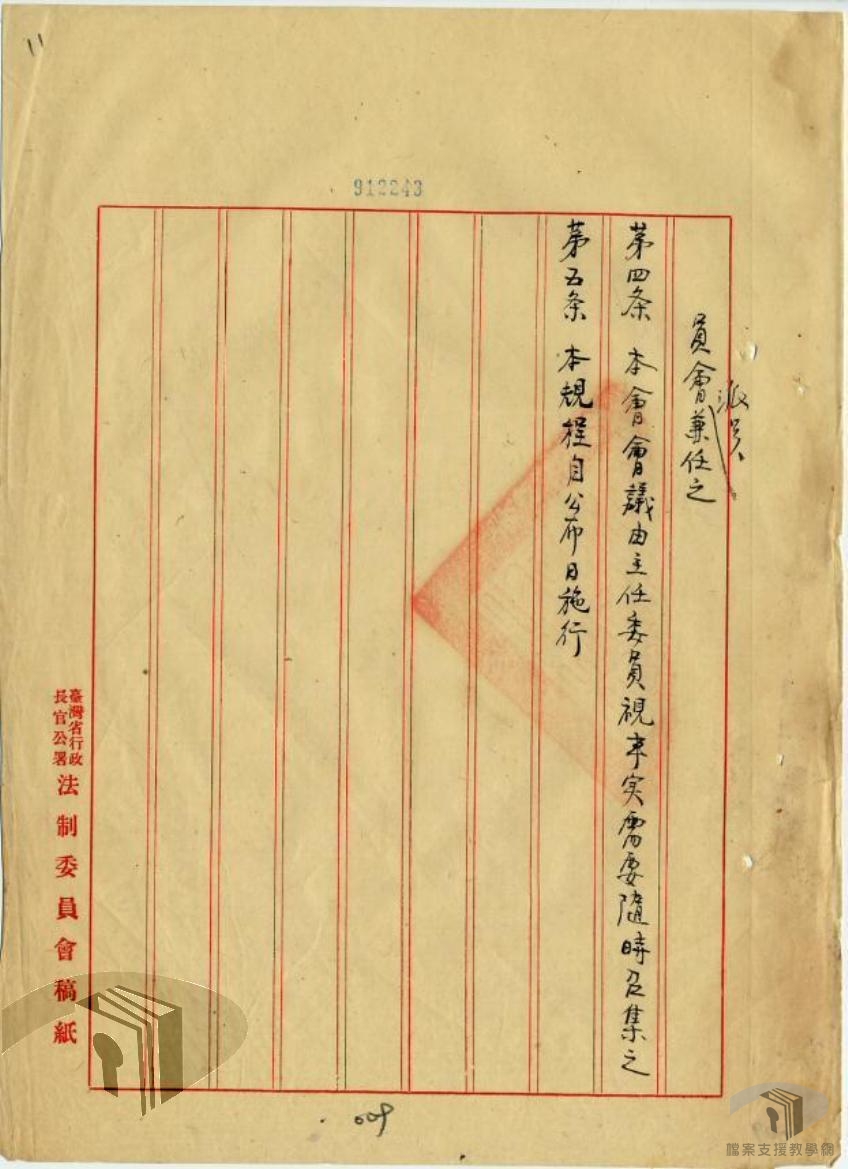 11
912243
員會派員兼任之
第四条 本會會議由主任委員視事实需要隨時召集之
第五条 本規程自公布日施行
臺灣省行政長官公署法制委員會稿紙
009
檔案支援教學網